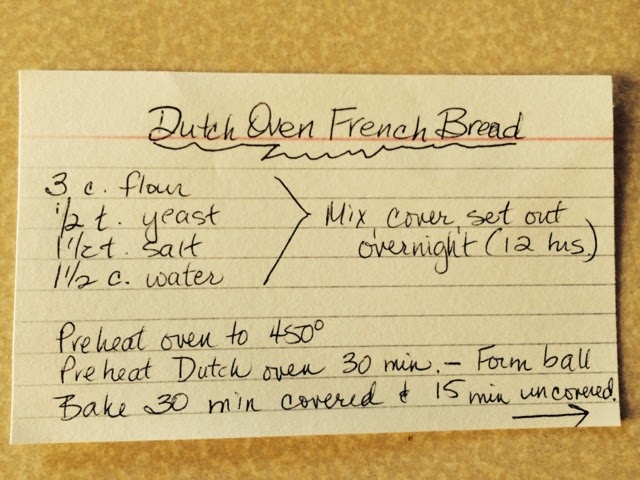 Dutch Oven French Bread
3 c. flour
1/2 t. yeast
1 1/2 t. salt
1 1/2 c. water
Mix, cover, set out
overnight (12 hrs.)
Preheat oven to 450°
Preheat Dutch oven 30 min. – Form ball
Bake 30 min covered & 15 min uncovered.